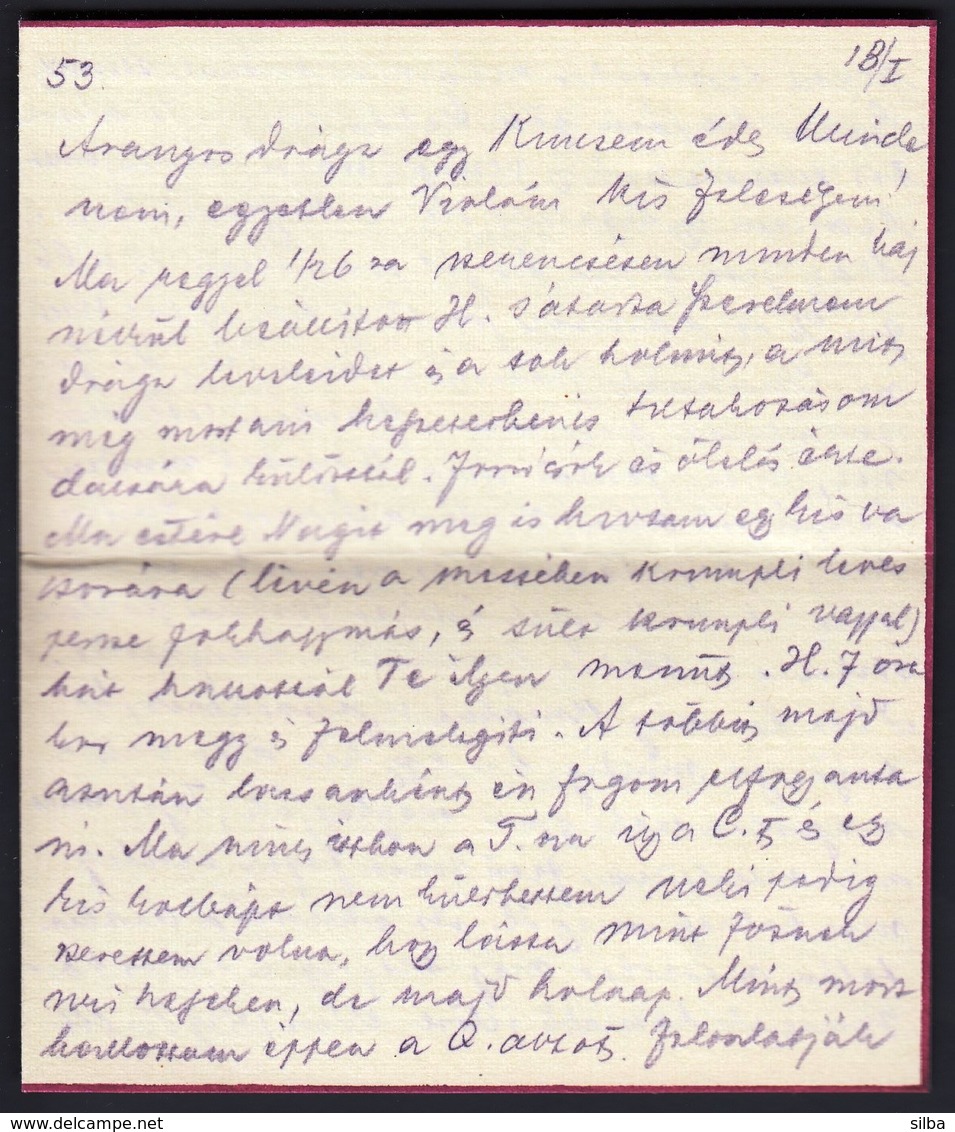 53.
18/I
Aranyos drága egy Kincsem édes Minde
nem, egyetlen Violám kis feleségem!
Ma reggel 1/2 6 ra szerencsésen minden baj
nélkül beállított H. s átadta Szerelmem
drága leveleidet és a sok holmit, a mit
még mostani
küldöttél. és ölelés érte.
Ma estére Nagit meg is hívtam egy kis va
csorára (lévén a messében krumpli leves
persze fokhagymás, és sült krumpli vajjal)
hát hallottál Te ilyen menüt. H. 7 óra
kor megy és felmelegíti. A többit majd
azután lassanként én fogom elfogyaszta
ni. Ma nincs itthon a T. na így a C. t és egy
kis kolbászt nem küldhettem neki pedig
szerettem volna, hogy lássa mint főznek
de majd holnap. Mint most
hallottam éppen a Q. autót feloszlatják
delcampe.net
silba